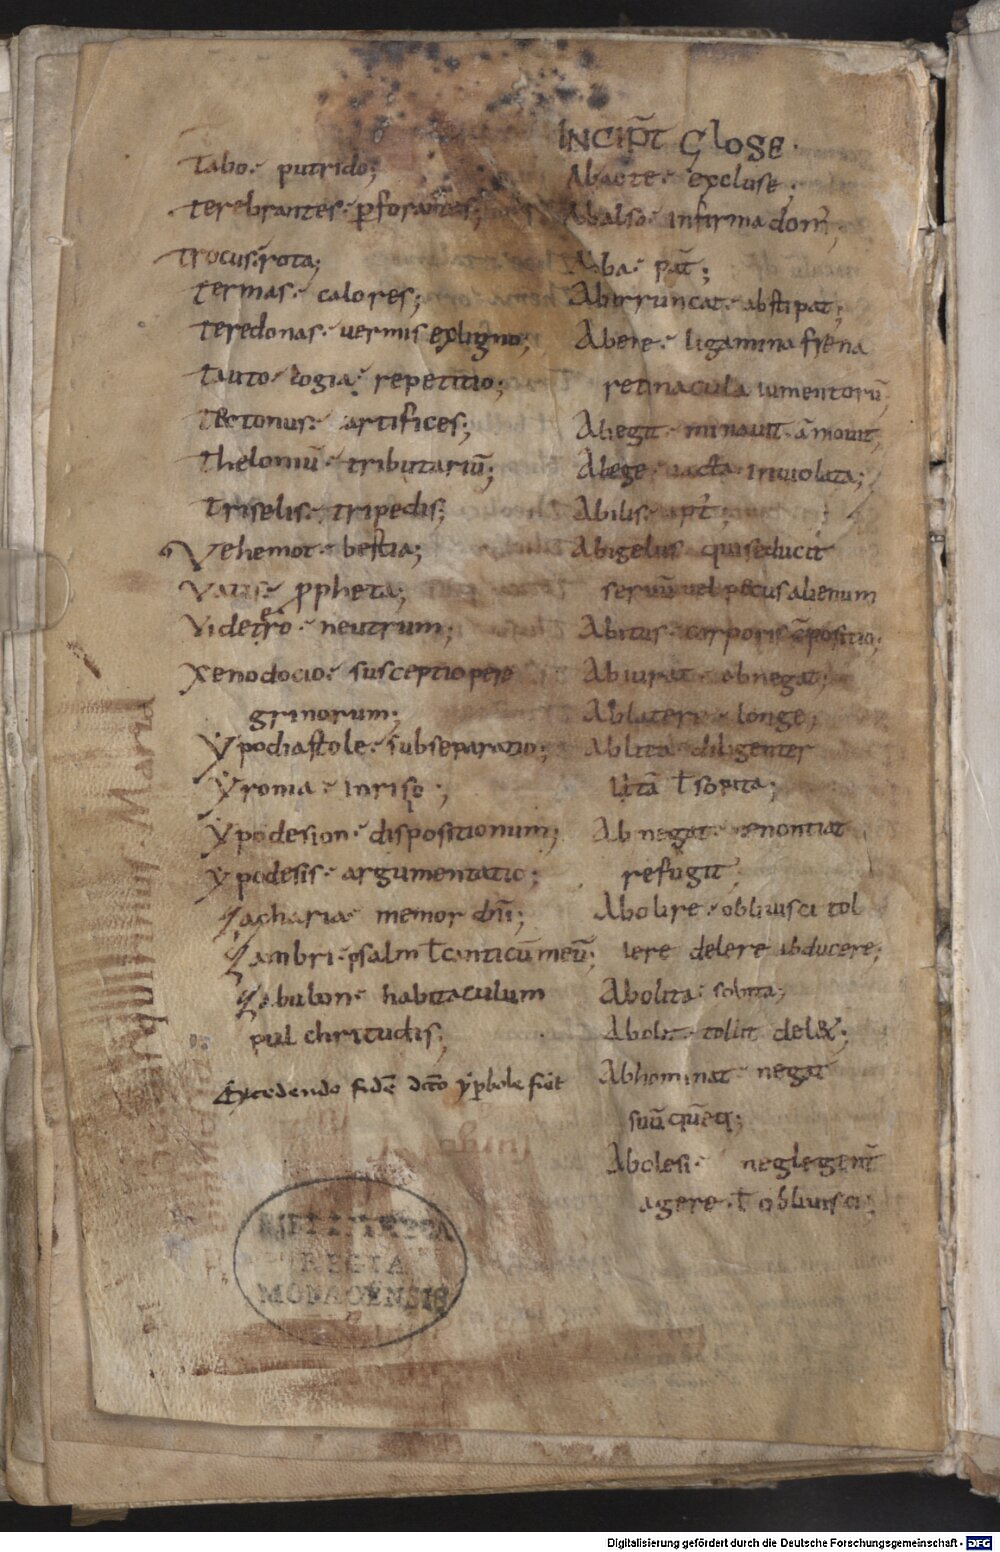 Tabo· putrido;
Terebrantes· ꝑforantes;
Trocus· rota;
Termas· calores;
Teredonas· uermis exligno;
Tauto logia· repetitio;
Tectonus· artifices;
Theloniū· tributariū;
Triselis· tripedis;
Vehemot· bestia;
Vatis· ꝓpheta;
Videt̄ro· neutrum;
Xenodocio· susceptio pere
grinorum;
Ypodiastole· subseparatio;
Yronia· Inriso;
Ypodesion· dispositionum;
Ypodesis· argumentatio;
Zacharia· memor dn̄i;
Zambri· psalm ł canticū meū;
Zabulon· habitaculum
pulchritudis;
Excedendo fidē dcō yꝑbole fiet
INCIP̄T GLOSE·
Abacte· excluse;
Abalso· Infirma dom̄;
Abba· pat̄;
Aberruncat· abstipat;
Abene· ligamina frena
retinacula iumentorū;
Abegit· minauit āmouit;
Abege· Inuiolata;
Abilis· apt̄;
Abigelus· qui seducit
seruū uel pecus alienum
Abitus· corporis cōpositio;
Abiurat· abnegat;
Ablatere· longe;
Ablita· diligenter
litā ł sopita;
Abnegat· renontiat
refugit;
Abolire· obliuisci tol
lere delere abducere;
Abolita· sobita;
Abolit· tollit del&;
Abhominat· negat
suū quēq;
Abolesi· neglegent̄
agere· ł obliuisci;
BIBLIOTHECA
REGIA
MONACENSIS
Digitalisierung gefördert durch die Deutsche Forschungsgemeinschaft - DFG